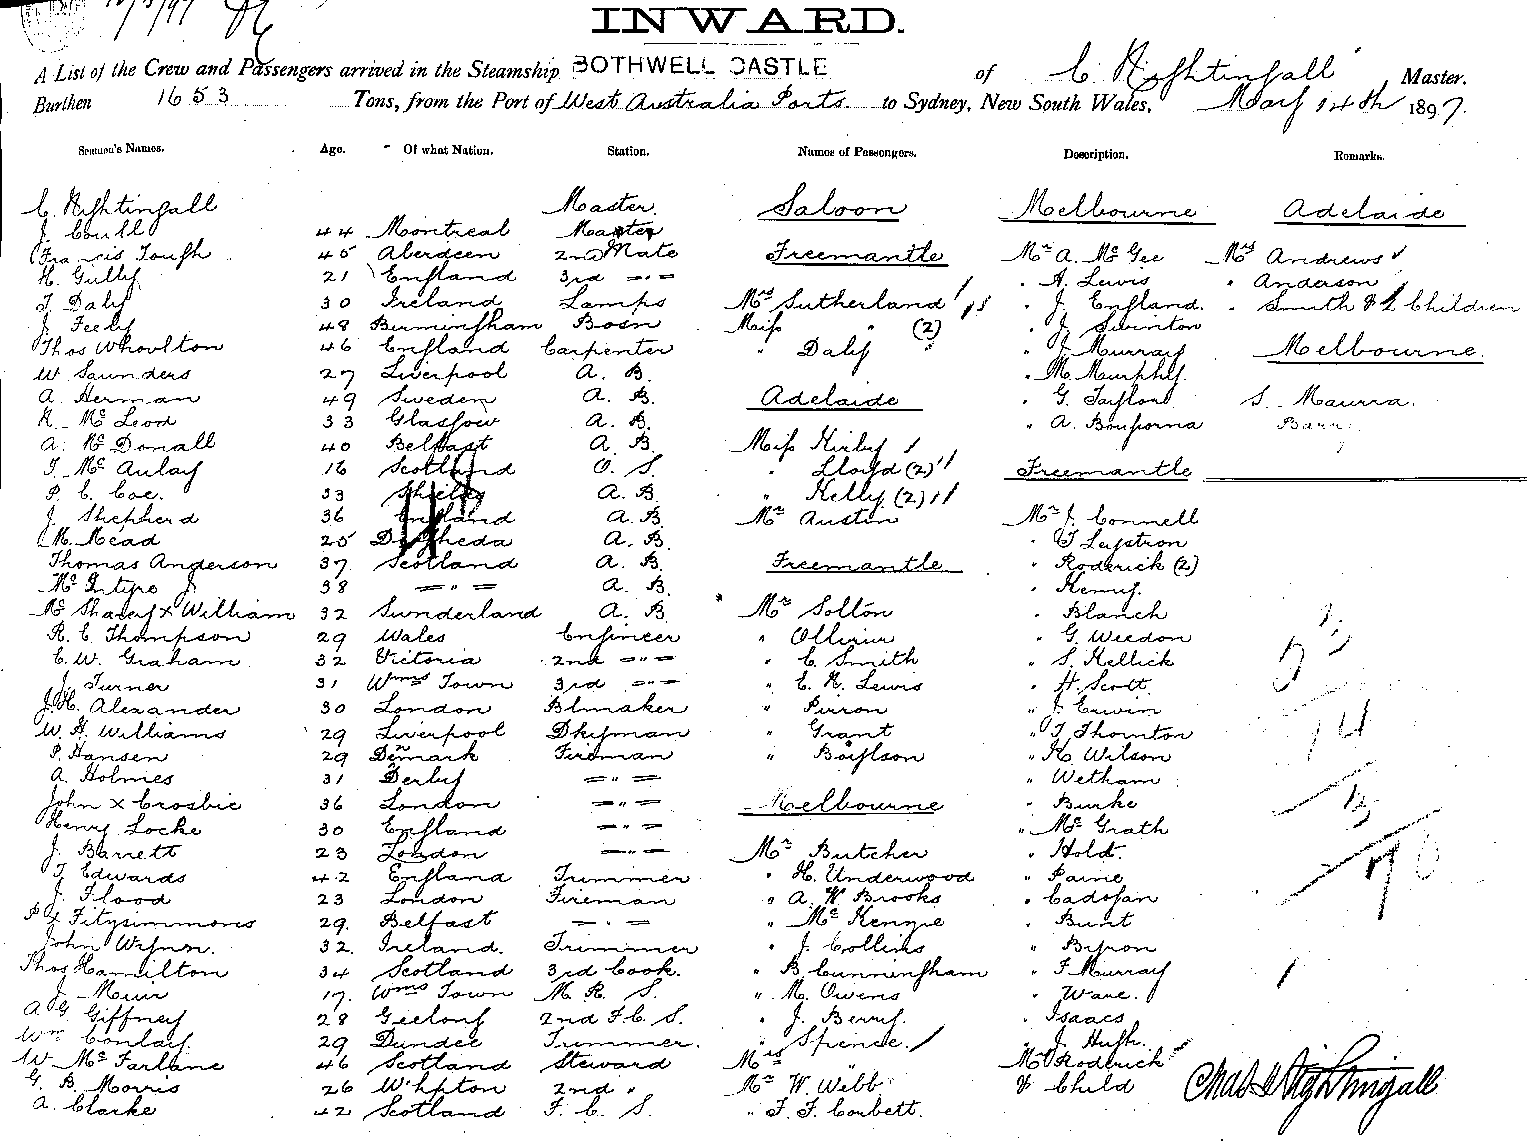 INWARD.
A List of the Crew and Passengers arrived in the Steamship BOTHWELL CASTLE of C. Nightingall, Master.
Burthen 1653 Tons, from the Port of West Australia Ports to Sydney, New South Wales, May 14th 1897.
Seamen's Names. Age. Of what Nation. Station. Names of Passengers. Description. Remarks.
C. Nightingall Master. Saloon Melbourne Adelaide
J. Coull 44 Montreal Mate
Francis Tough 45 Aberdeen 2nd Mate Freemantle Mr A. Mc Gee Mrs Andrews
H. Gully 21 England 3rd -"- " A. Lewis " Anderson
T. Daly 30 Ireland Lamps Mrs Sutherland " J. England " Smith & 2 Children
J. Feely 48 Birmingham Bosn Miss " (2) " J. Swinton
Thos Whoulton 46 England Carpenter " Daly " J. Murray Melbourne
W. Saunders 27 Liverpool A. B. " M. Murphy
A. Herman 49 Sweden A. B. Adelaide " G. Taylor S. Maurra
K. Mc Leod 33 Glasgow A. B. " A. Bonforna Barry
A. Mc Donall 40 Belfast A. B. Miss Kirby
T. Mc Aulay 16 Scotland O. S. " Lloyd (2) Freemantle
P. C. Coe. 33 Shields A. B. " Kelly (2)
J. Shepherd 36 England A. B. Mr Austin Mr J. Connell
M. Mead 25 Drogheda A. B. " Leystron
Thomas Anderson 37 Scotland A. B. Freemantle " Roderick (2)
Mc Intyre J. 38 -"- A. B. " Kenny
Mc Sharey x William 32 Sunderland A. B. Mr Solton " Blanch
R. C. Thompson 29 Wales Engineer " Ollivier " G. Weedon
C. W. Graham 32 Victoria 2nd -"- " C. Smith " S. Kellick
J. Turner 31 Wms Town 3rd -"- " C. R. Lewis " H. Scott
J. H. Alexander 30 London Blmaker " Pirron " J. Erwin
W. H. Williams 29 Liverpool Dkyman " Grant " T. Thornton
P. Hansen 29 Denmark Fireman " Boylson " H. Wilson
A. Holmes 31 Derby -"- " Wetham
John x Crosbie 36 London -"- Melbourne " Burke
Henry Locke 30 England -"- " Mc Grath
J. Barrett 23 London -"- Mr Butcher " Hold.
T. Edwards 42 England Trimmer " H. Underwood " Paine
J. Flood 23 London Fireman " A. W. Brooks " Cadogan
P. Fitzsimmons 29 Belfast -"- " Mc Kenzie " Bunt
John Wynn. 32. Ireland. Trimmer " J. Collins " Byron
Thos Hamilton 34 Scotland 3rd Cook. " B. Cunningham " F. Murray
J. Muir 17. Wms Town M. R. S. " M. Owens " Ware.
A. G. Giffney 28 Geelong 2nd F. C. S. " J. Berry. " Isaacs
Wm Conlay 29 Dundee Trimmer. " Spence. " J. Hugh.
W. Mc Farlane 46 Scotland Steward Mrs " Mrs Roderick
G. B. Morris 26 W'hpton 2nd " Mr W. Webb & Child
A. Clarke 42 Scotland F. C. S. " F. F. Corbett.
Chas Nightingall